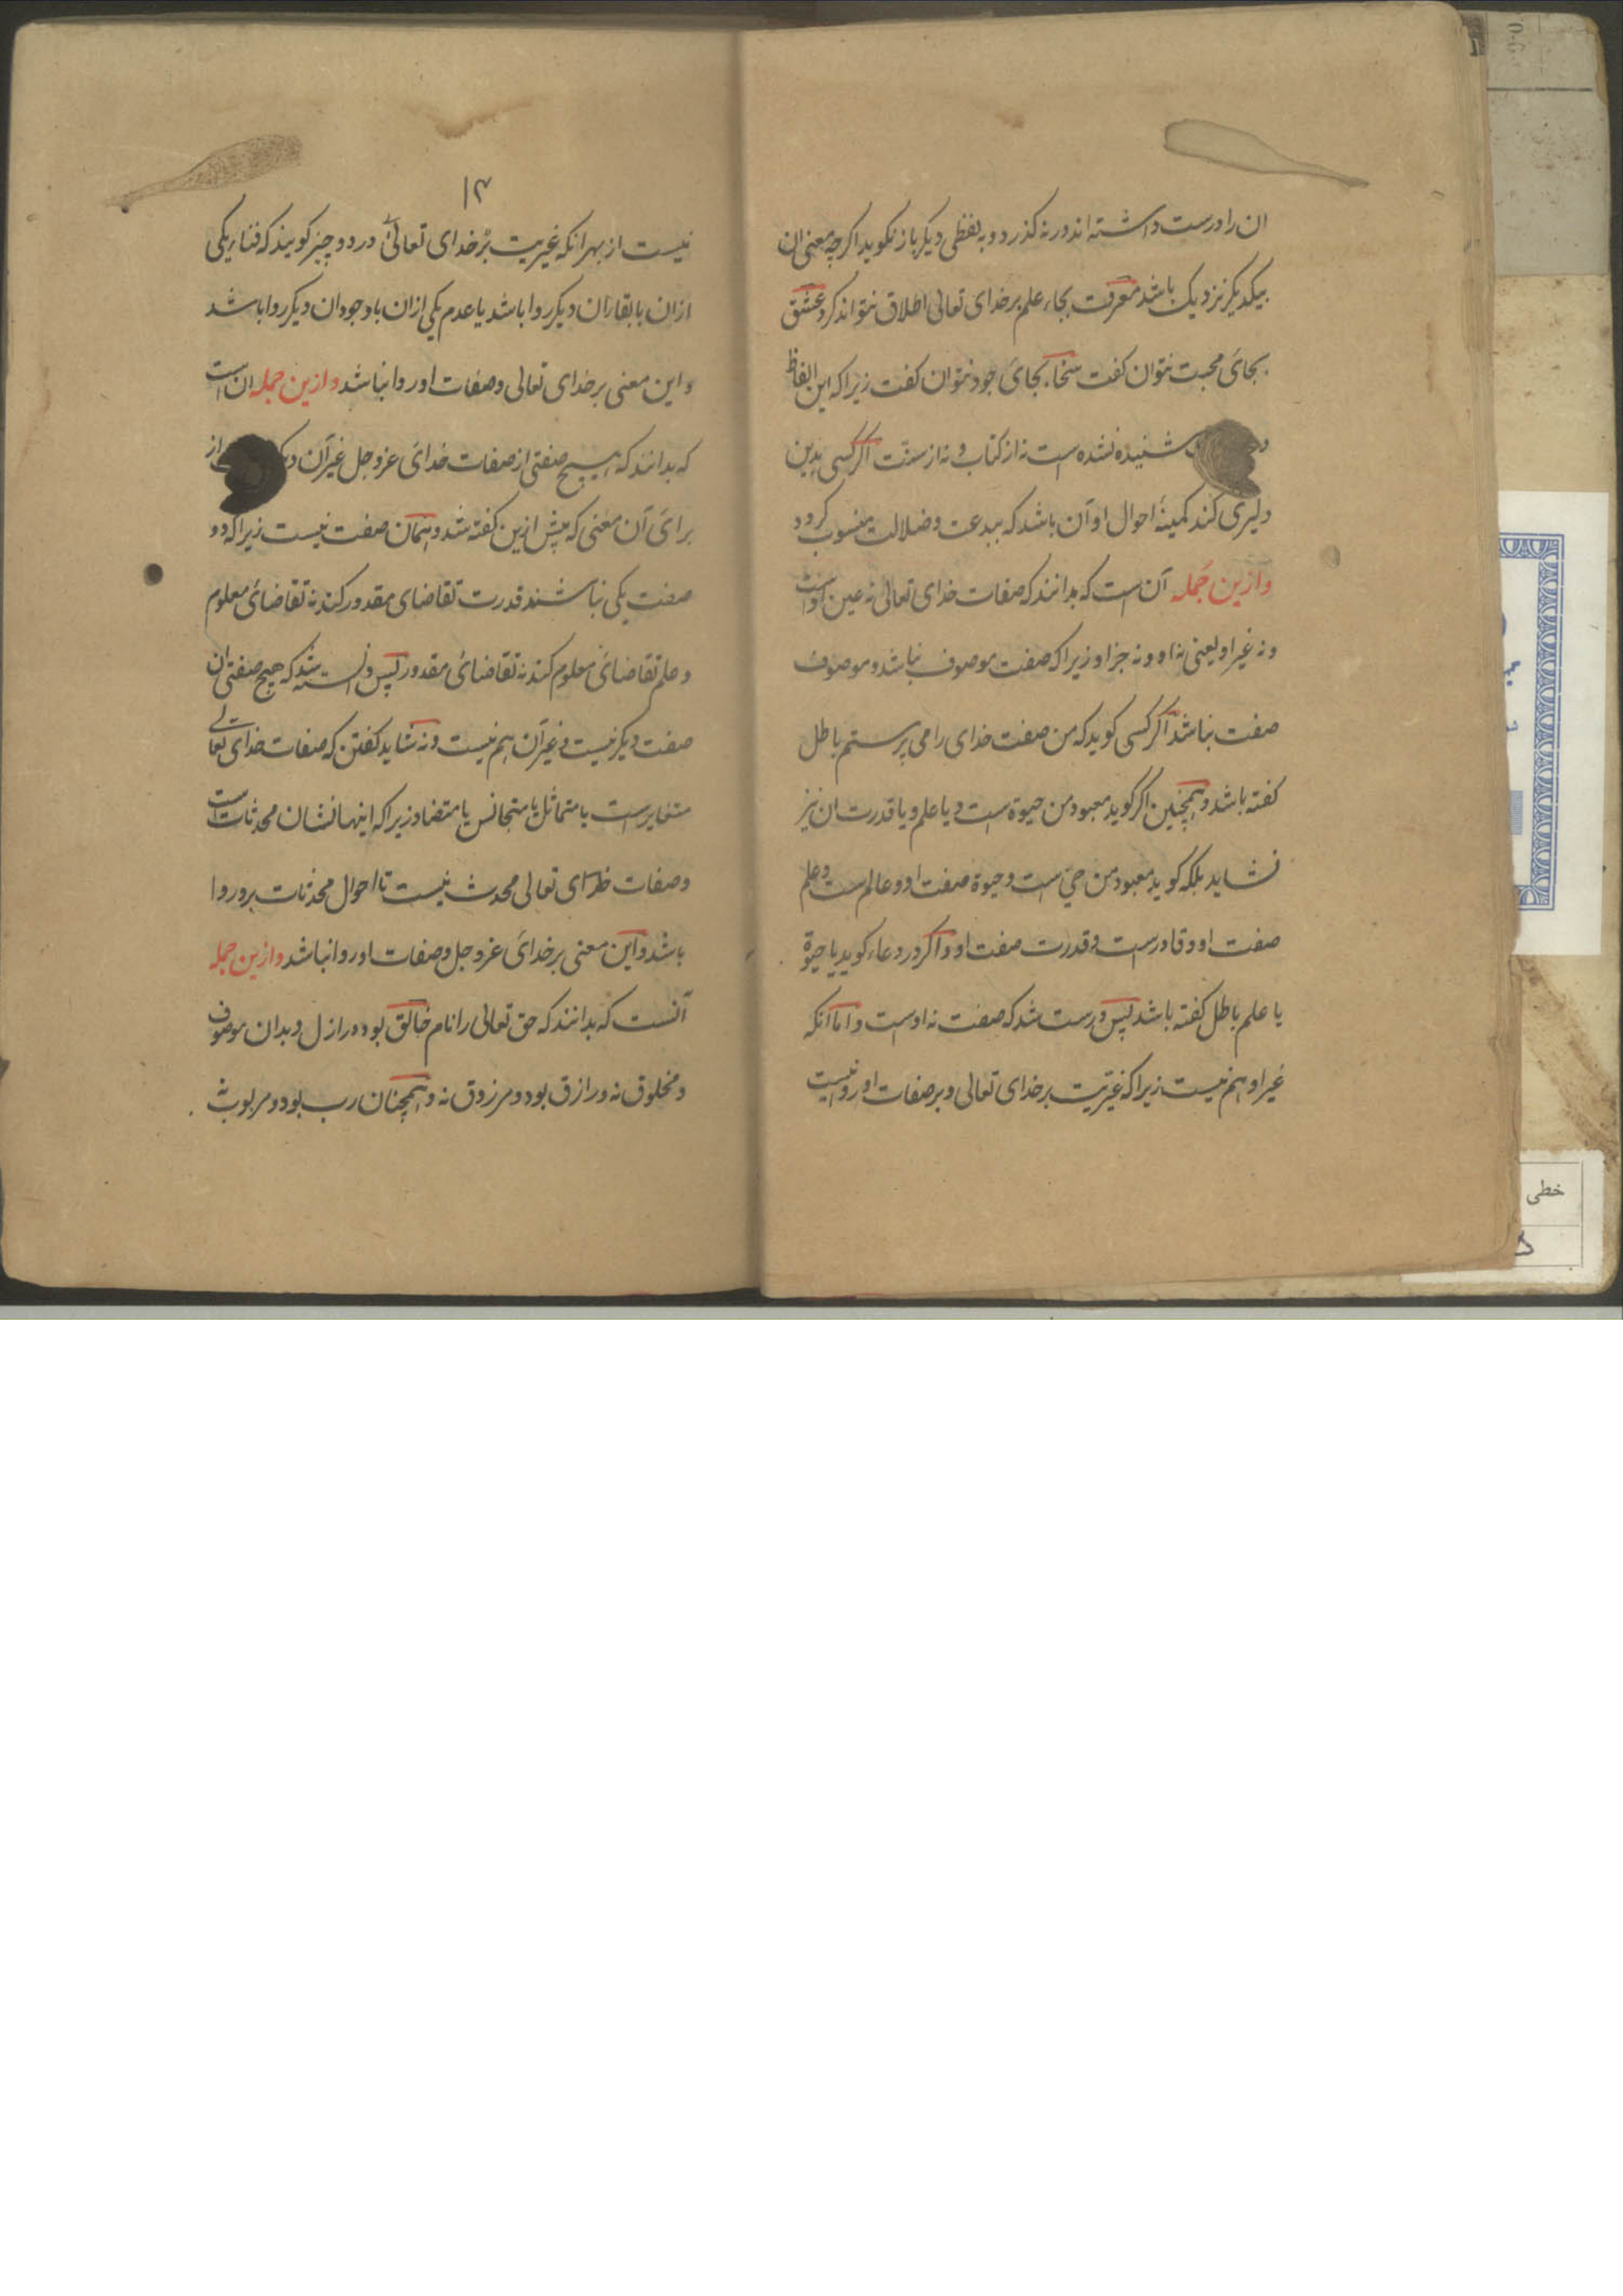 ان را درست داشته اند در نه گذرد و به لفظی دیکر باز نکوید اکرچه معنی ان
بیکدیکر نزدیک باشد معرفت بجاء علم بر خدای تعالی اطلاق نتواند کرد و عشق
بجای محبت نتوان کفت سخاء بجای جود نتوان کفت زیرا که این الفاظ
شنیده نشده است نه از کتاب و نه از سنت اکر کسی بدین
دلیری کند کمینهٔ احوال او آن باشد که ببدعت و ضلالت منسوب کردد
وازین جمله آن است که بدانند که صفات خدای تعالی نه عین اوست
و نه غیر او یعنی نه او و نه جز او زیرا که صفت موصوف نباشد و موصوف
صفت نباشد اکر کسی کوید که من صفت خدای را می پرستم باطل
کفته باشد و همچنین اکر کوید معبود من حیوة است و یا علم و یا قدرت ان نیز
نشاید بلکه کوید معبود من حی است و حیوة صفت او و عالم است و علم
صفت او و قادرست و قدرت صفت او و اکر در دعاء کوید یا حیوة
یا علم باطل کفته باشد پس درست شد که صفت نه اوست و اما انکه
غیر او هم نیست زیرا که غیریت بر خدای تعالی و بر صفات او روا نیست
۱۳
نیست از بهر انکه غیریت بر خدای تعالی در دو چیز کویند که فناء یکی
ازان با بقاء ان دیکر روا باشد یا عدم یکی ازان با وجود ان دیکر روا باشد
و این معنی بر خدای تعالی و صفات او روا نباشد وازین جمله ان است
که بدانند که هیچ صفتی از صفات خدای عز و جل غیر آن از
برای آن معنی که پیش ازین کفته شد و همان صفت نیست زیرا که دو
صفت یکی نباشند قدرت تقاضای مقدور کند نه تقاضای معلوم
و علم تقاضای معلوم کند نه تقاضای مقدور پس دانسته شد که هیچ صفتی ان
صفت دیکر نیست و غیر آن هم نیست و نه شاید کفتن که صفات خدای تعالی
متغایرست یا متماثل یا متجانس یا متضاد زیرا که اینها نشان محدثات است
و صفات خدای تعالی محدث نیست تا احوال محدثات برو روا
باشد و این معنی بر خدای عز و جل و صفات او روا نباشد وازین جمله
آنست که بدانند که حق تعالی را نام خالق بود در ازل و بدان موصوف
و مخلوق نه و رازق بود و مرزوق نه و همچنان رب بود و مربوب
خطی